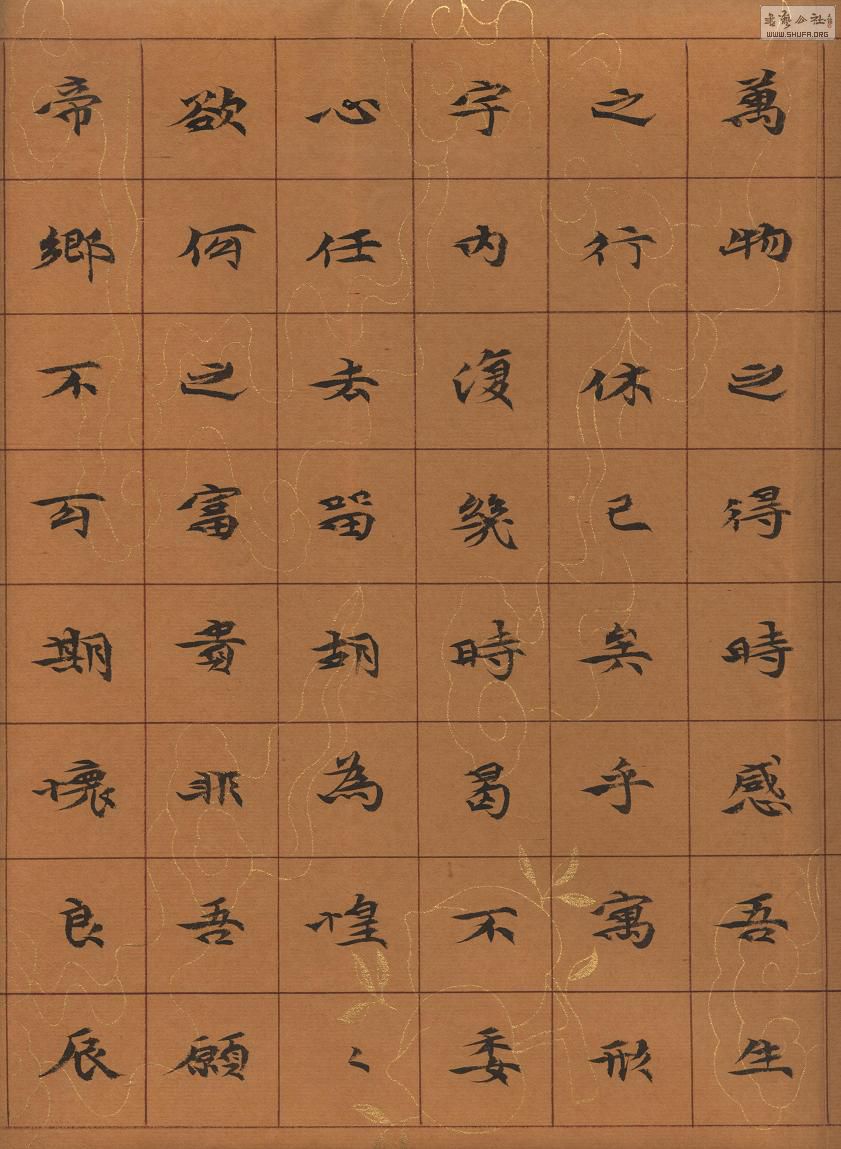 萬物之得時感吾生
之行休已矣乎寓形
宇內復幾時曷不委
心任去留胡為惶〻
欲何之富貴非吾願
帝鄉不可期懷良辰
書藝公社
WWW.SHUFA.ORG